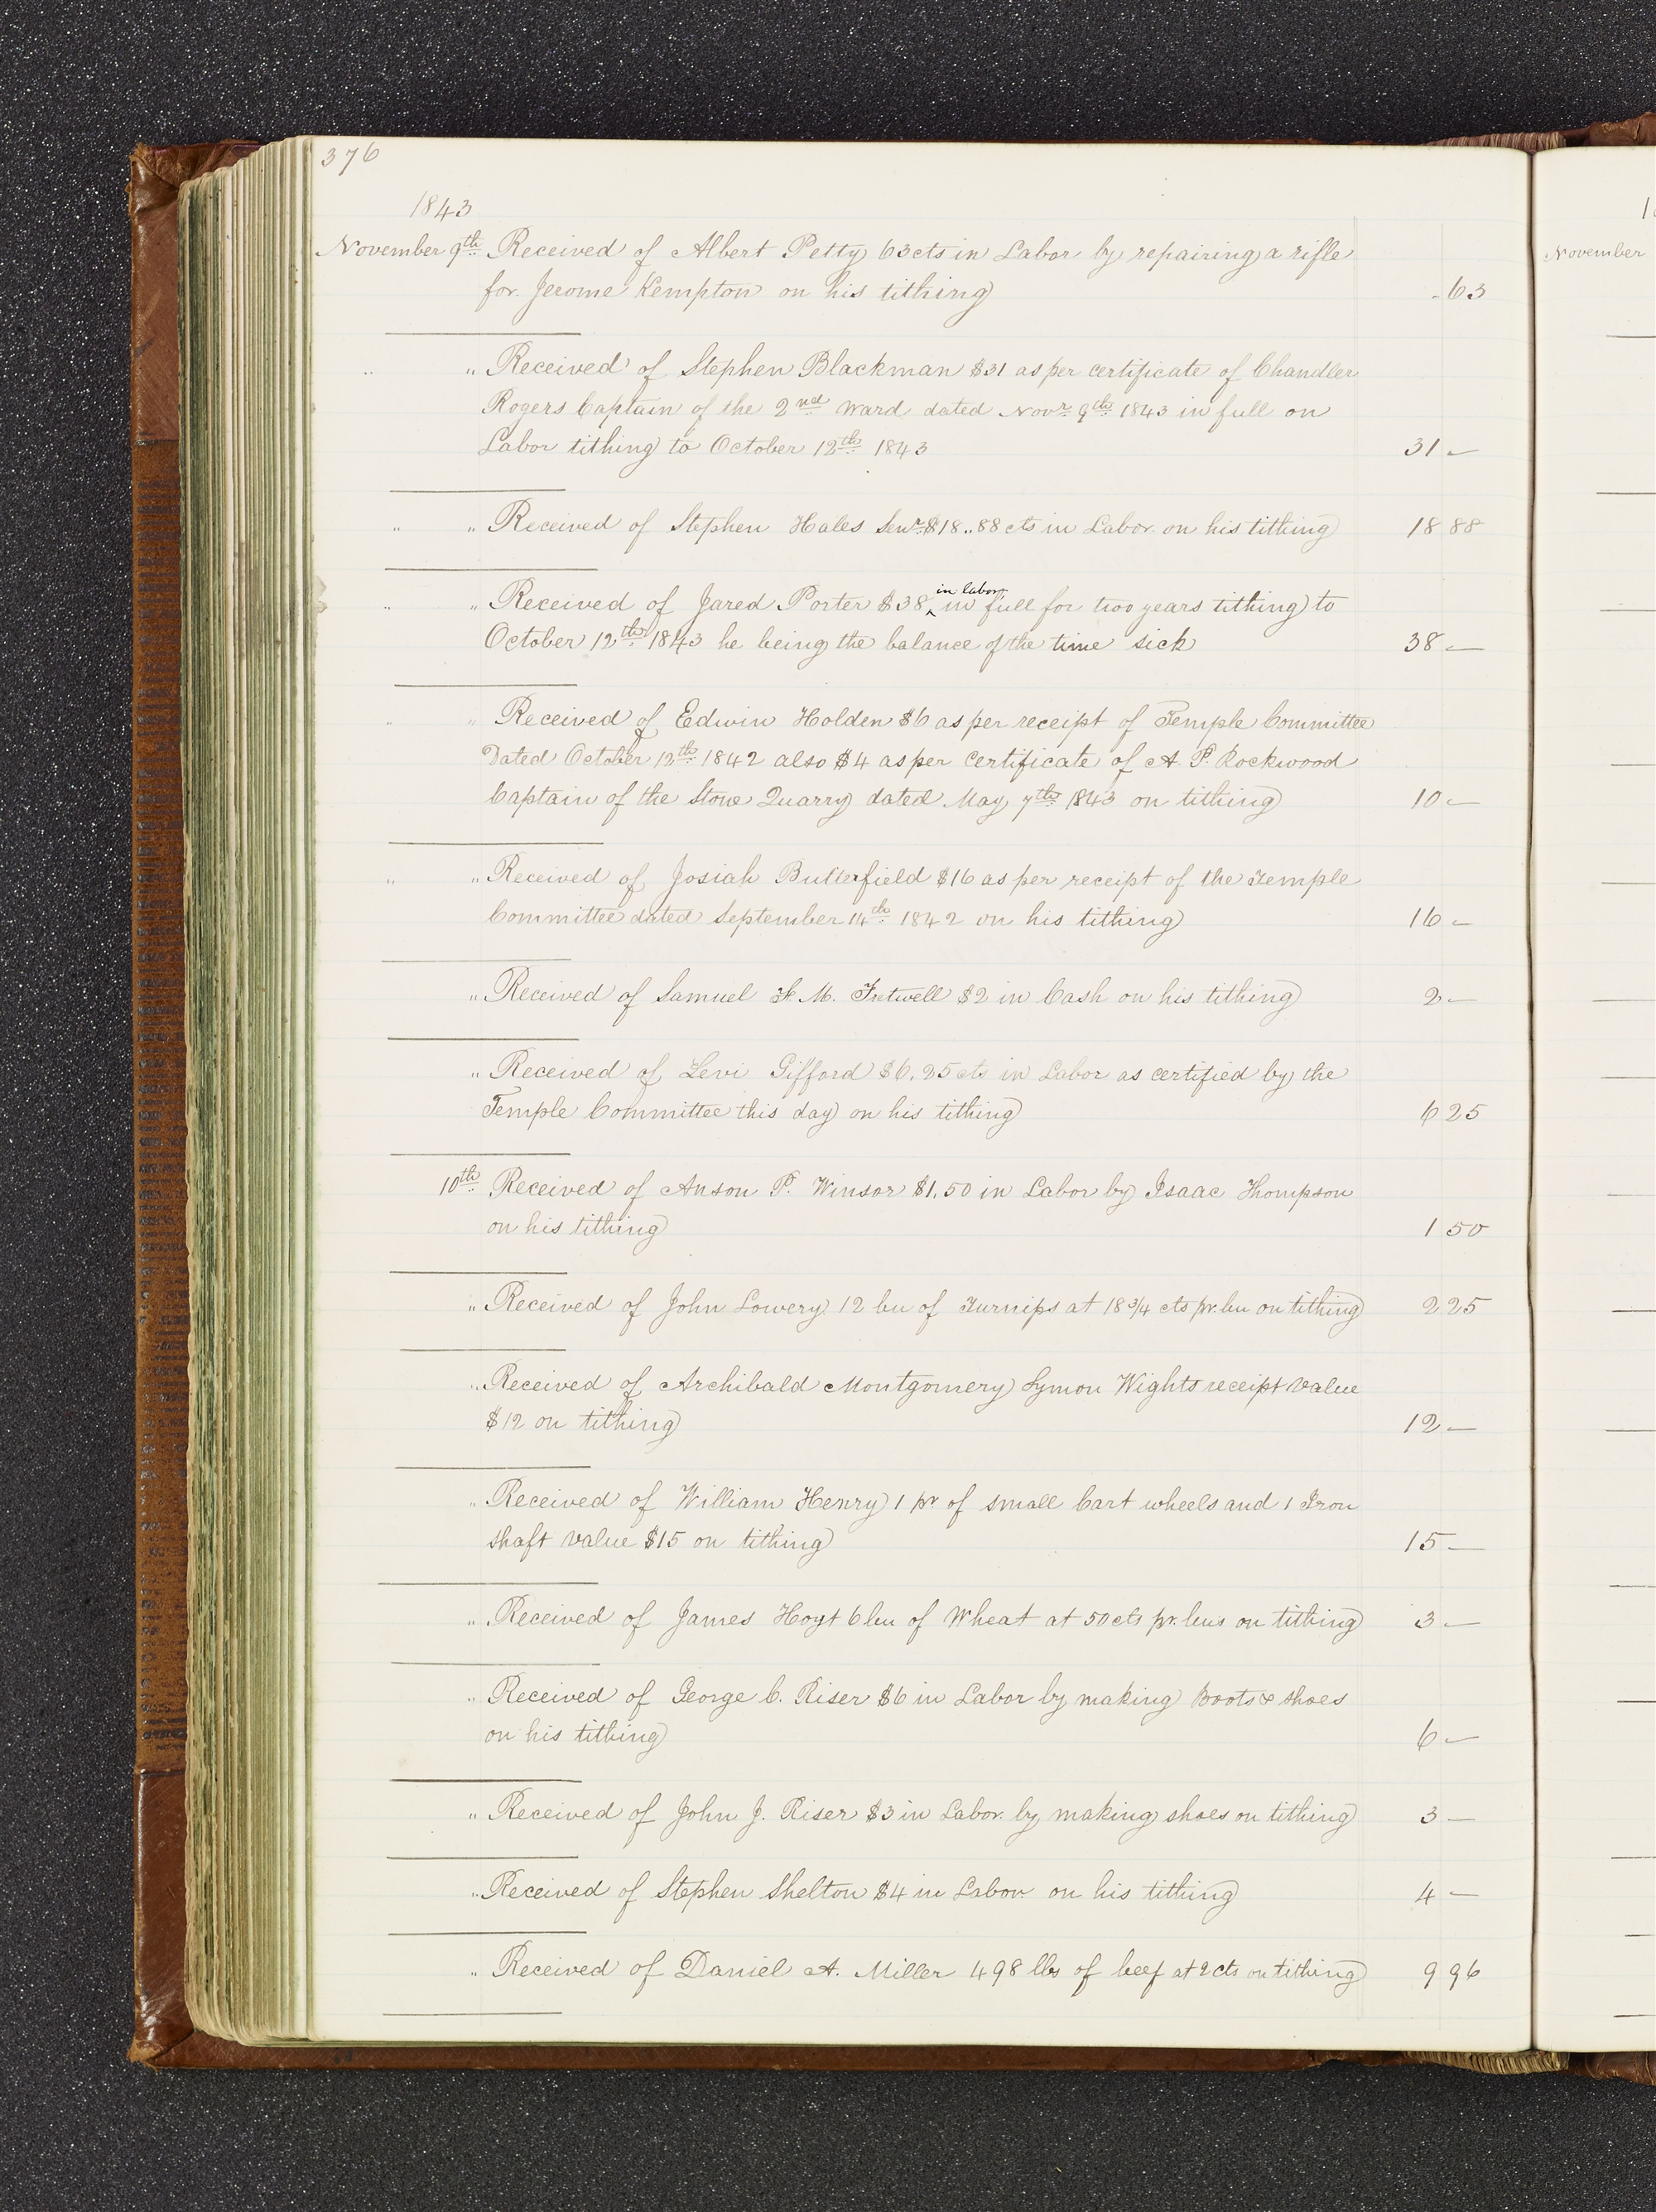 376
1843
November 9th Received of Albert Petty 63cts in Labor by repairing a rifle
for Jerome Kempton on his tithing 63
" " Received of Stephen Blackman $31 as per certificate of Chandler
Rogers Captain of the 2nd Ward dated Novr 9th 1843 in full on
Labor tithing to October 12th 1843 31 —
" " Received of Stephen Hales Senr $18..88 cts in Labor on his tithing 18 88
" " Received of Jared Porter $38 ^in labor in full for two years tithing to
October 12th 1843 he being the balance of the time sick 38 —
" " Received of Edwin Holden $6 as per receipt of Temple Committee
Dated October 12th 1842 also $4 as per certificate of A. P. Rockwood
Captain of the Stone Quarry dated May 7th 1843 on tithing 10 —
" " Received of Josiah Butterfield $16 as per receipt of the Temple
Committee dated September 14th 1842 on his tithing 16 —
" Received of Samuel F. M. Fretwell $2 in Cash on his tithing 2 —
" Received of Levi Gifford $6.25 cts in Labor as certified by the
Temple Committee this day on his tithing 6 25
10th Received of Anson P. Winsor $1.50 in Labor by Isaac Thompson
on his tithing 1 50
" Received of John Lowery 12 bu of Turnips at 18 3/4 cts pr. bu on tithing 2 25
" Received of Archibald Montgomery Lymon Wights receipt value
$12 on tithing 12 —
" Received of William Henry 1 pr of small Cart wheels and 1 Iron
shaft value $15 on tithing 15 —
" Received of James Hoyt 6 bu of Wheat at 50 cts pr. bus on tithing 3 —
" Received of George C. Riser $6 in Labor by making Boots & shoes
on his tithing 6 —
" Received of John J. Riser $3 in Labor by making shoes on tithing 3 —
" Received of Stephen Shelton $4 in Labor on his tithing 4 —
" Received of Daniel A. Miller 498 lbs of beef at 2 cts on tithing 9 96
November